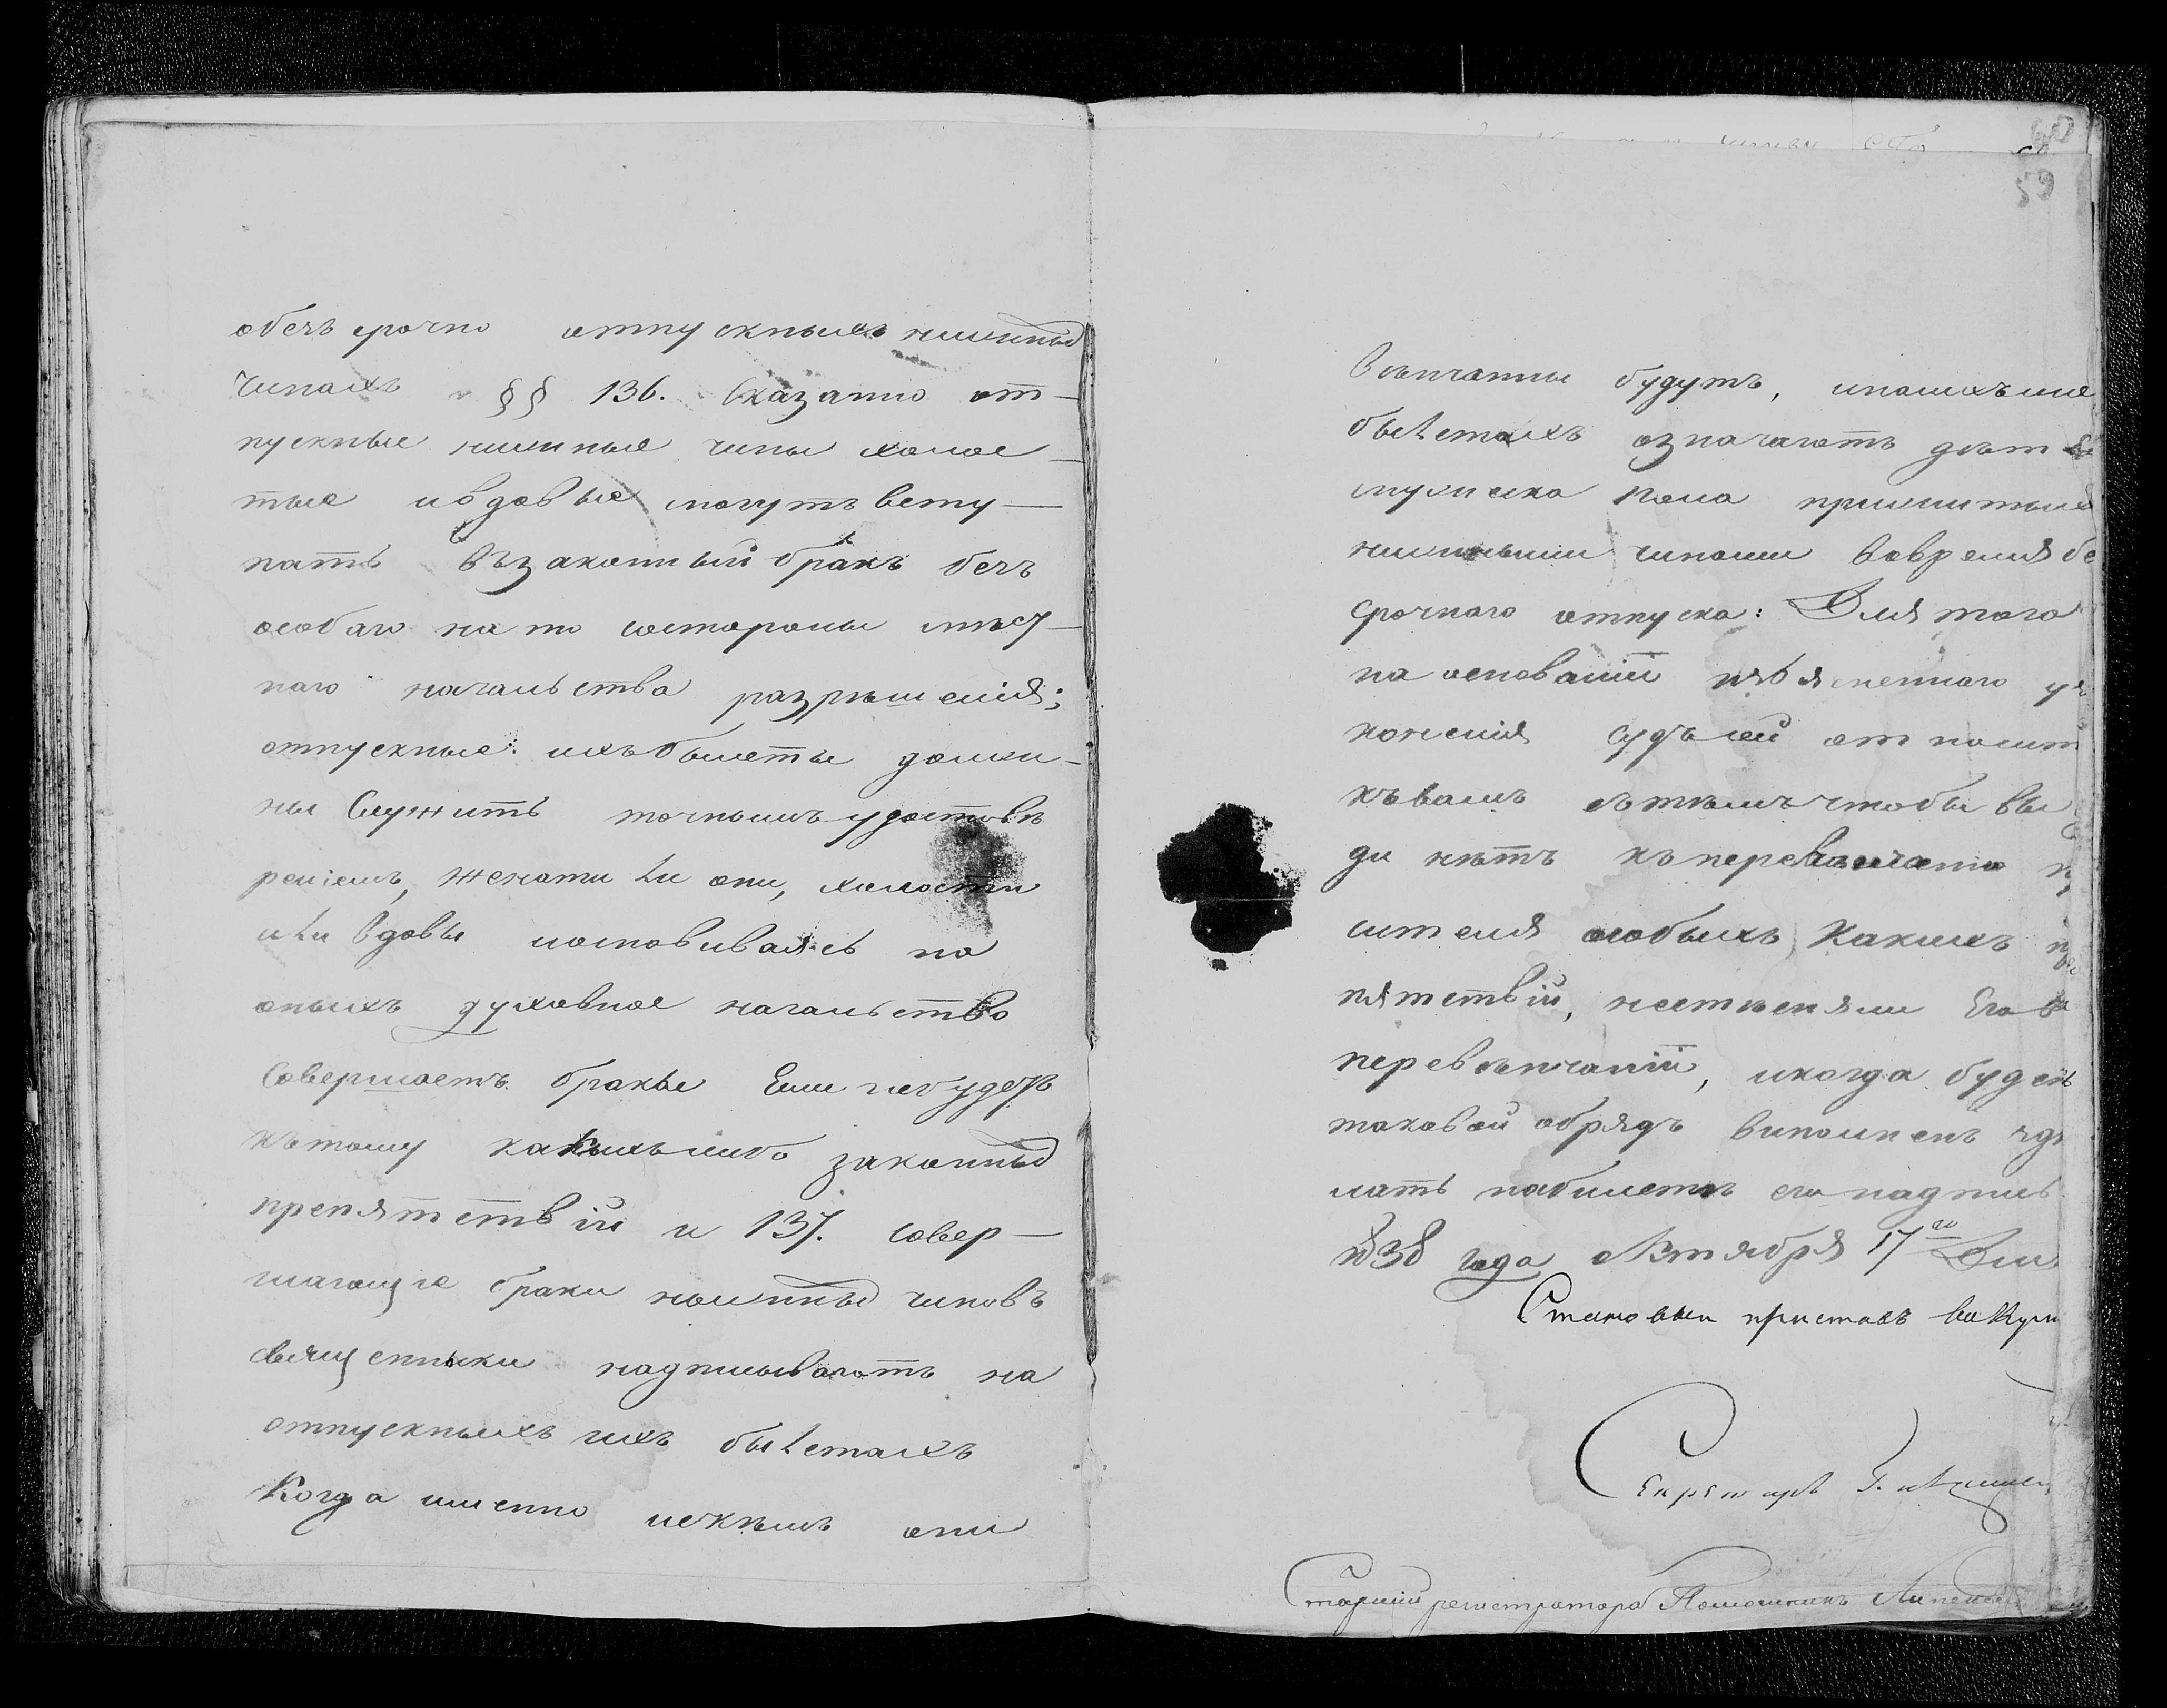 обезсрочно отпускныхъ нижныхъ
чинахъ §§ 136. Сказанно от-
пускные нижные чины холос-
тые ивдовые могутъ всту-
пать взаконный бракъ безъ
особаго на то состороны мест-
наго начальства разрешенія;
отпускные ихъ былеты долж-
ны Служить точнымъ удостове
реніемъ, женати ли они, холости
или вдовы иосновываясь на
оныхъ духовное начальство
Совершаетъ бракы Если небудетъ
ктому какихълибо законныхъ
препятствій и 137. совер-
шающіе браки нижныхъ чиновъ
священники надписываютъ на
отпускныхъ ихъ былетахъ
Когда именно искемъ они
59
Венчанны будутъ, инаихъже
былетахъ означаютъ детей
мужеска пола прижитыхъ
нижными чинами вовремя бе
срочнаго отпуска: Для того
на основаніи изъясненнаго
коненія судъ сей относит
квамъ стемъ чтобы вы
ди нетъ къперевенчанію
сителя особыхъ какихъ
пятствій, нестесняли Его в
перевенчаніи, икогда будетъ
таковой обрядъ выполненъ
лать набилетъ его надпись
1838 года Октября 17го Дня
Становый приставъ
Секретарь
Старшій регистраторъ